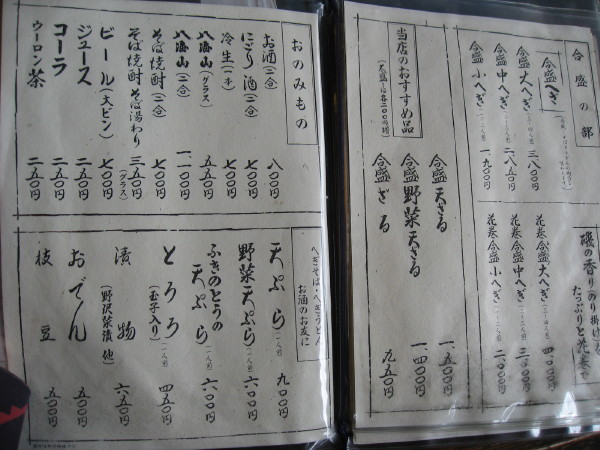 合盛の部
合盛へぎ
合盛大へぎ(三~四人前) 三八〇〇円
合盛中へぎ(二~三人前) 二八五〇円
合盛小へぎ(一~二人前) 一九〇〇円
磯の香り(のり掛け)を
たっぷりと花巻で
花巻合盛大へぎ 四〇〇〇円
花巻合盛中へぎ 三〇〇〇円
花巻合盛小へぎ 二〇〇〇円
当店のおすすめ品
(大盛りは各200円増)
合盛天ざる 一、五〇〇円
合盛野菜天ざる 一、四〇〇円
合盛ざる 九五〇円
おのみもの
お酒(二合) 八〇〇円
にごり酒(二合) 七〇〇円
冷生(一本) 七〇〇円
八海山(グラス) 五五〇円
八海山(二合) 一、一〇〇円
そば焼酎(二合) 七〇〇円
そば焼酎そば湯わり(グラス) 三五〇円
ビール(大ビン) 七〇〇円
ジュース 二五〇円
コーラ 二五〇円
ウーロン茶 二五〇円
へぎそば・へぎうどん
お酒のお友に
天ぷら(一人前) 九〇〇円
野菜天ぷら(一人前) 六〇〇円
ふきのとうの
天ぷら(一人前) 六〇〇円
とろろ(玉子入り)(一人前) 四五〇円
漬物(野沢菜漬他) 六五〇円
おでん 五〇〇円
枝豆 五〇〇円